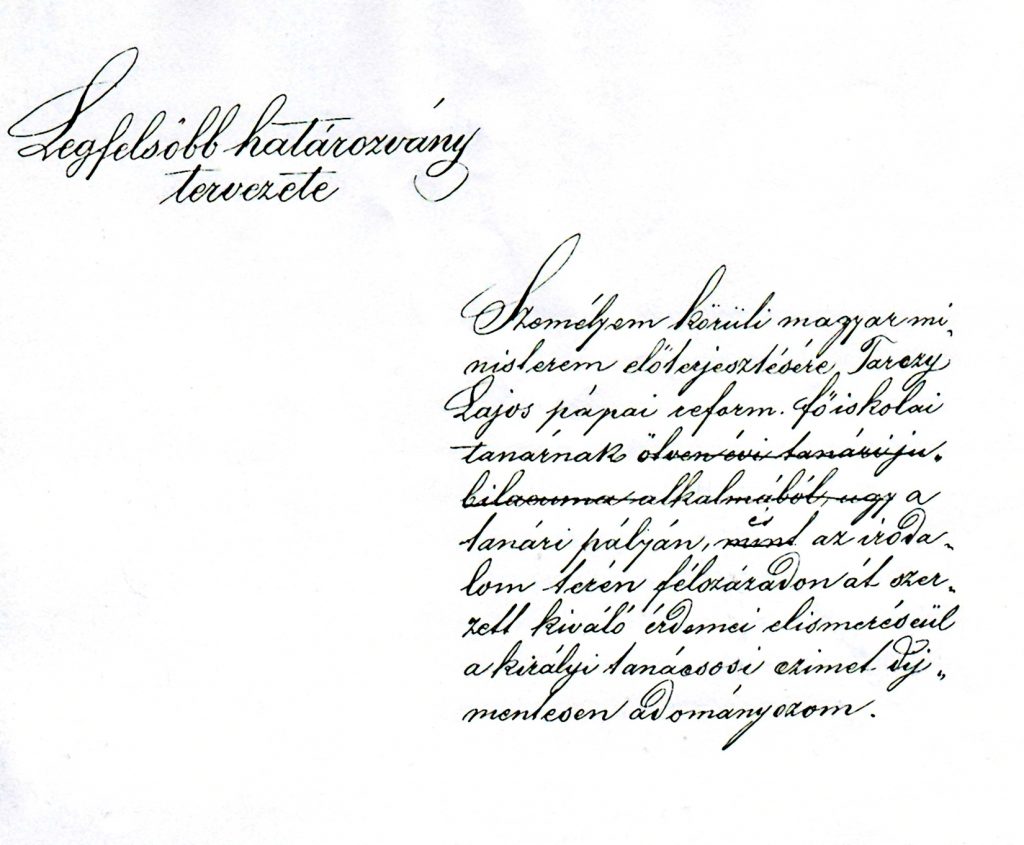 Legfelsőbb határozvány
tervezete
Személyem körüli magyar mi-
nisterem előterjesztésére, Tarczy
Lajos pápai reform. főiskolai
tanárnak ötven évi tanári ju-
bilaeuma alkalmából, ugy a
és
tanári pályán, mint az iroda-
lom terén félszázadon át szer-
zett kiváló érdemei elismeréseül
a királyi tanácsosi czimet díj-
mentesen adományozom.